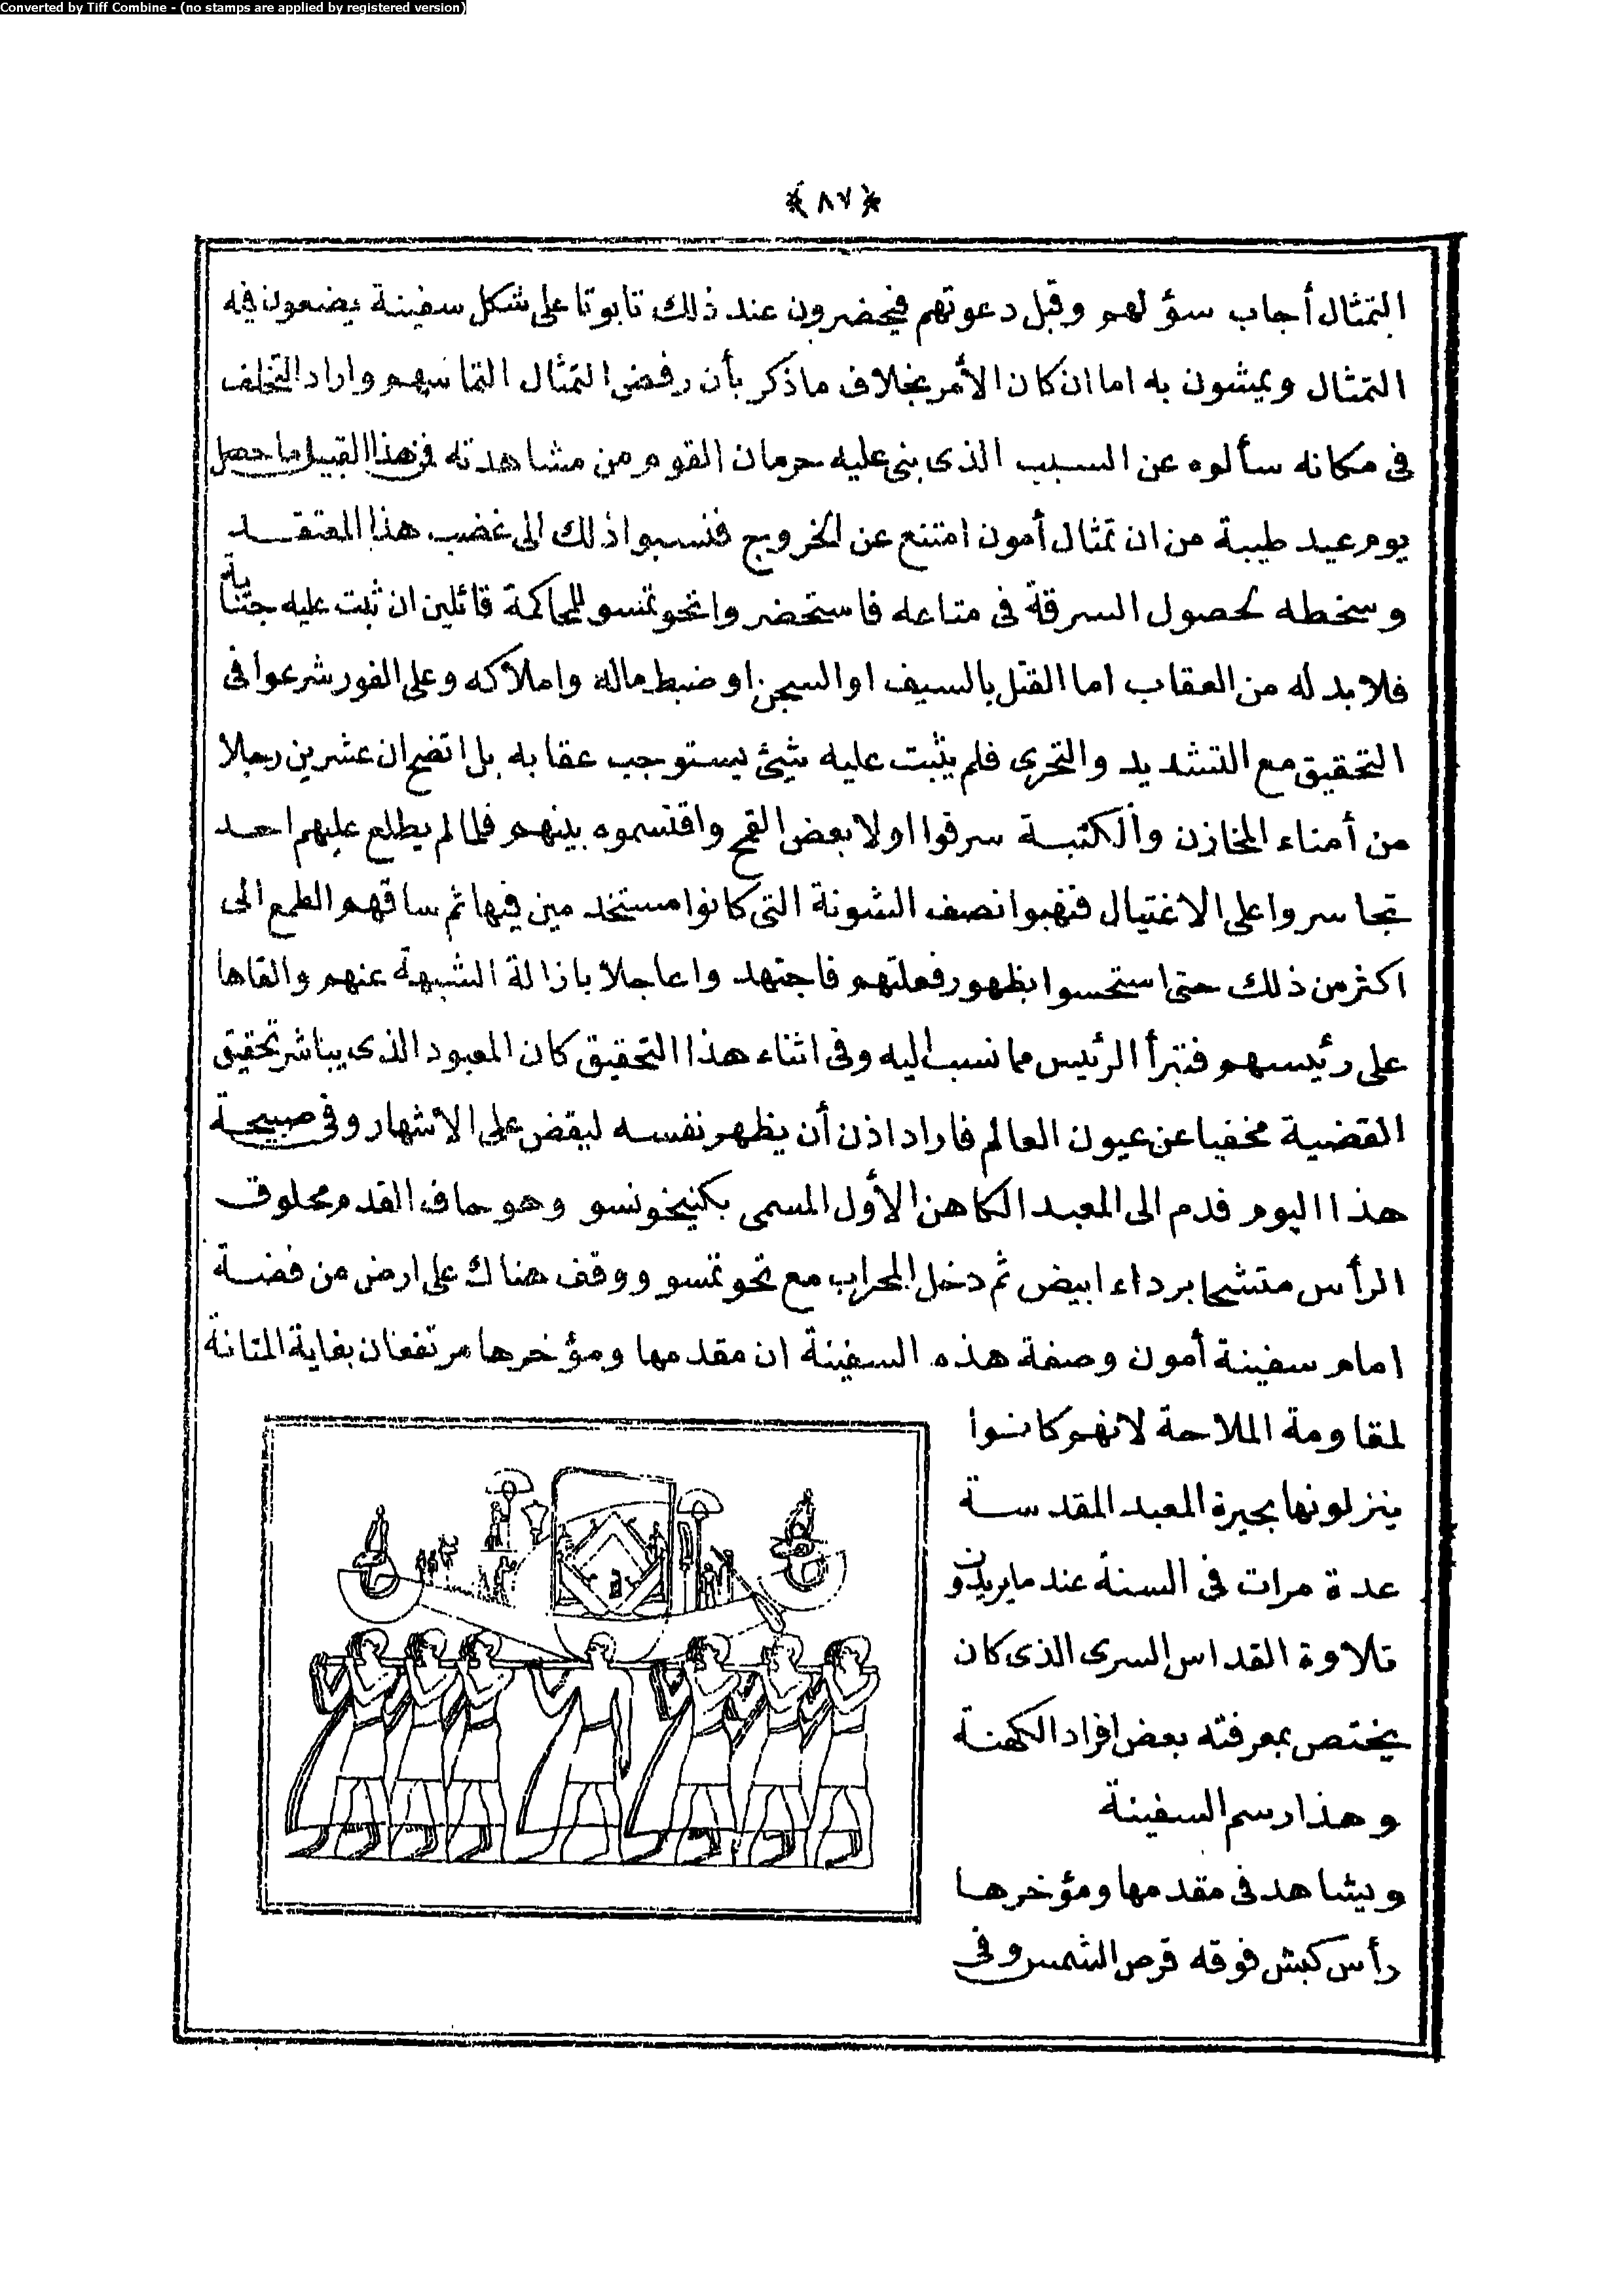 Converted by Tiff Combine - (no stamps are applied by registered version)
﴿٨٧﴾
التمثال أجاب سؤلهم وقبل دعوتهم فيحضرون عند ذلك تابوتا على شكل سفينة يضعون فيه
التمثال ويمشون به اما ان كان الأمر بخلاف ماذكر بأن رفض التمثال التماسهم واراد التخلف
فى مكانه سألوه عن السبب الذى بنى عليه حرمان القوم من مشاهدته فمن هذا القبيل ما حصل
يوم عيد طيبة من ان تمثال أمون امتنع عن الخروج فنسبوا ذلك الى غضب هذا المعتقد
وسخطه لحصول السرقة فى متاعه فاستحضروا تحوتمسو للمحاكمة قائلين ان ثبت عليه جناية
فلا بد له من العقاب اما القتل بالسيف او السجن او ضبط ماله واملاكه وعلى الفور شرعوا فى
التحقيق مع التشديد والتحرى فلم يثبت عليه شيئ يستوجب عقابه بل اتضح ان عشرين رجلا
من أمناء المخازن والكتبة سرقوا اولا بعض القمح واقتسموه بينهم فلما لم يطلع عليهم احد
تجاسروا على الاغتيال فنهبوا نصف الشونة التى كانوا مستخدمين فيها ثم ساقهم الطمع الى
اكثر من ذلك حتى استحسوا بظهور فعلتهم فاجتهدوا عاجلا بازالة الشبهة عنهم والقاها
على رئيسهم فتبرأ الرئيس مما نسب اليه وفى اثناء هذا التحقيق كان المعبود الذى يباشر تحقيق
القضية مخفيا عن عيون العالم فاراد اذن أن يظهر نفسه ليقض على الأشهار وفى صبيحة
هذا اليوم قدم الى المعبد الكاهن الأول المسمى بكنيخونسو وهو حاف القدم محلوق
الرأس متشحا برداء ابيض ثم دخل المحراب مع تحوتمسو ووقف هناك على ارض من فضة
امام سفينة أمون وصفة هذه السفينة ان مقدمها ومؤخرها مرتفعان بغاية المتانة
لمقاومة الملاحة لانهم كانوا
ينزلونها بحيرة المعبد المقدسة
عدة مرات فى السنة عند مايريدون
تلاوة القداس السرى الذى كان
يختص بمعرفته بعض افراد الكهنة
وهذا رسم السفينة
ويشاهد فى مقدمها ومؤخرها
رأس كبش فوقه قرص الشمس وفى